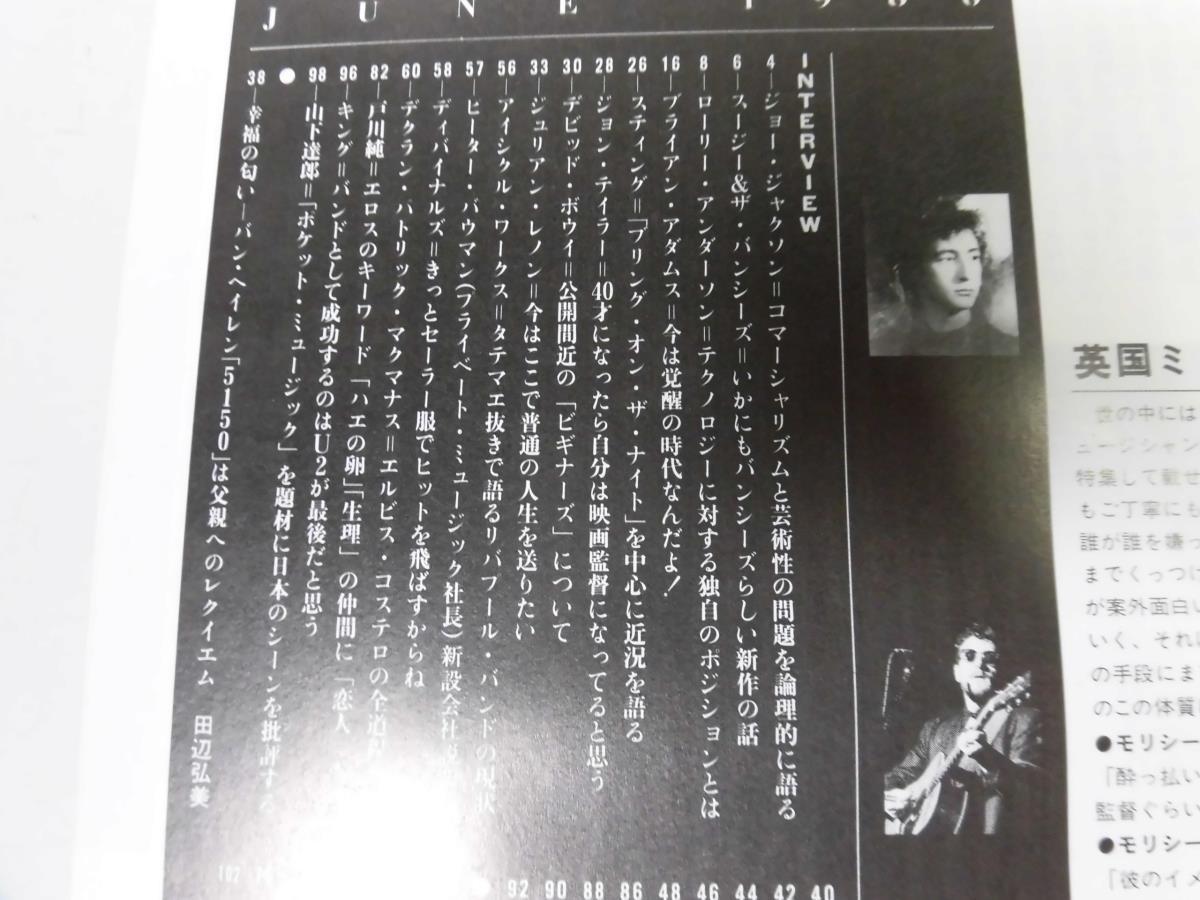 JUNE 1986
INTERVIEW
4―ジョー・ジャクソン＝コマーシャリズムと芸術性の問題を論理的に語る
6―スージー&ザ・バンシーズ＝いかにもバンシーズらしい新作の話
8―ローリー・アンダーソン＝テクノロジーに対する独自のポジションとは
16―ブライアン・アダムス＝今は覚醒の時代なんだよ!
26―スティング＝「ブリング・オン・ザ・ナイト」を中心に近況を語る
28―ジョン・テイラー＝40才になったら自分は映画監督になってると思う
30―デビッド・ボウイ＝公開間近の「ビギナーズ」について
33―ジュリアン・レノン＝今はここで普通の人生を送りたい
56―アイシクル・ワークス＝タテマエ抜きで語るリバプール・バンドの現状
57―ピーター・バウマン(プライベート・ミュージック社長)新設会社
58―ディバイナルズ＝きっとセーラー服でヒットを飛ばすからね
60―デクラン・パトリック・マクマナス＝エルビス・コステロの全道程
82―戸川純＝エロスのキーワード「ハエの卵」「生理」の仲間に「恋人
96―キング＝バンドとして成功するのはU2が最後だと思う
98―山下達郎＝「ポケット・ミュージック」を題材に日本のシーンを批評する
●
38―幸福の匂い―バン・ヘイレン「5150」は父親へのレクイエム 田辺弘美
40
42
44
46
48
86
88
90
92
●
102
英国ミ
世の中には
ュージシャン
特集して載せ
もご丁寧にも
誰が誰を嫌っ
までくっつけ
が案外面白い
いく、それに
の手段にま
のこの体質
●モリシー
「酔っ払い
監督ぐらい
●モリシー
「彼のイメ